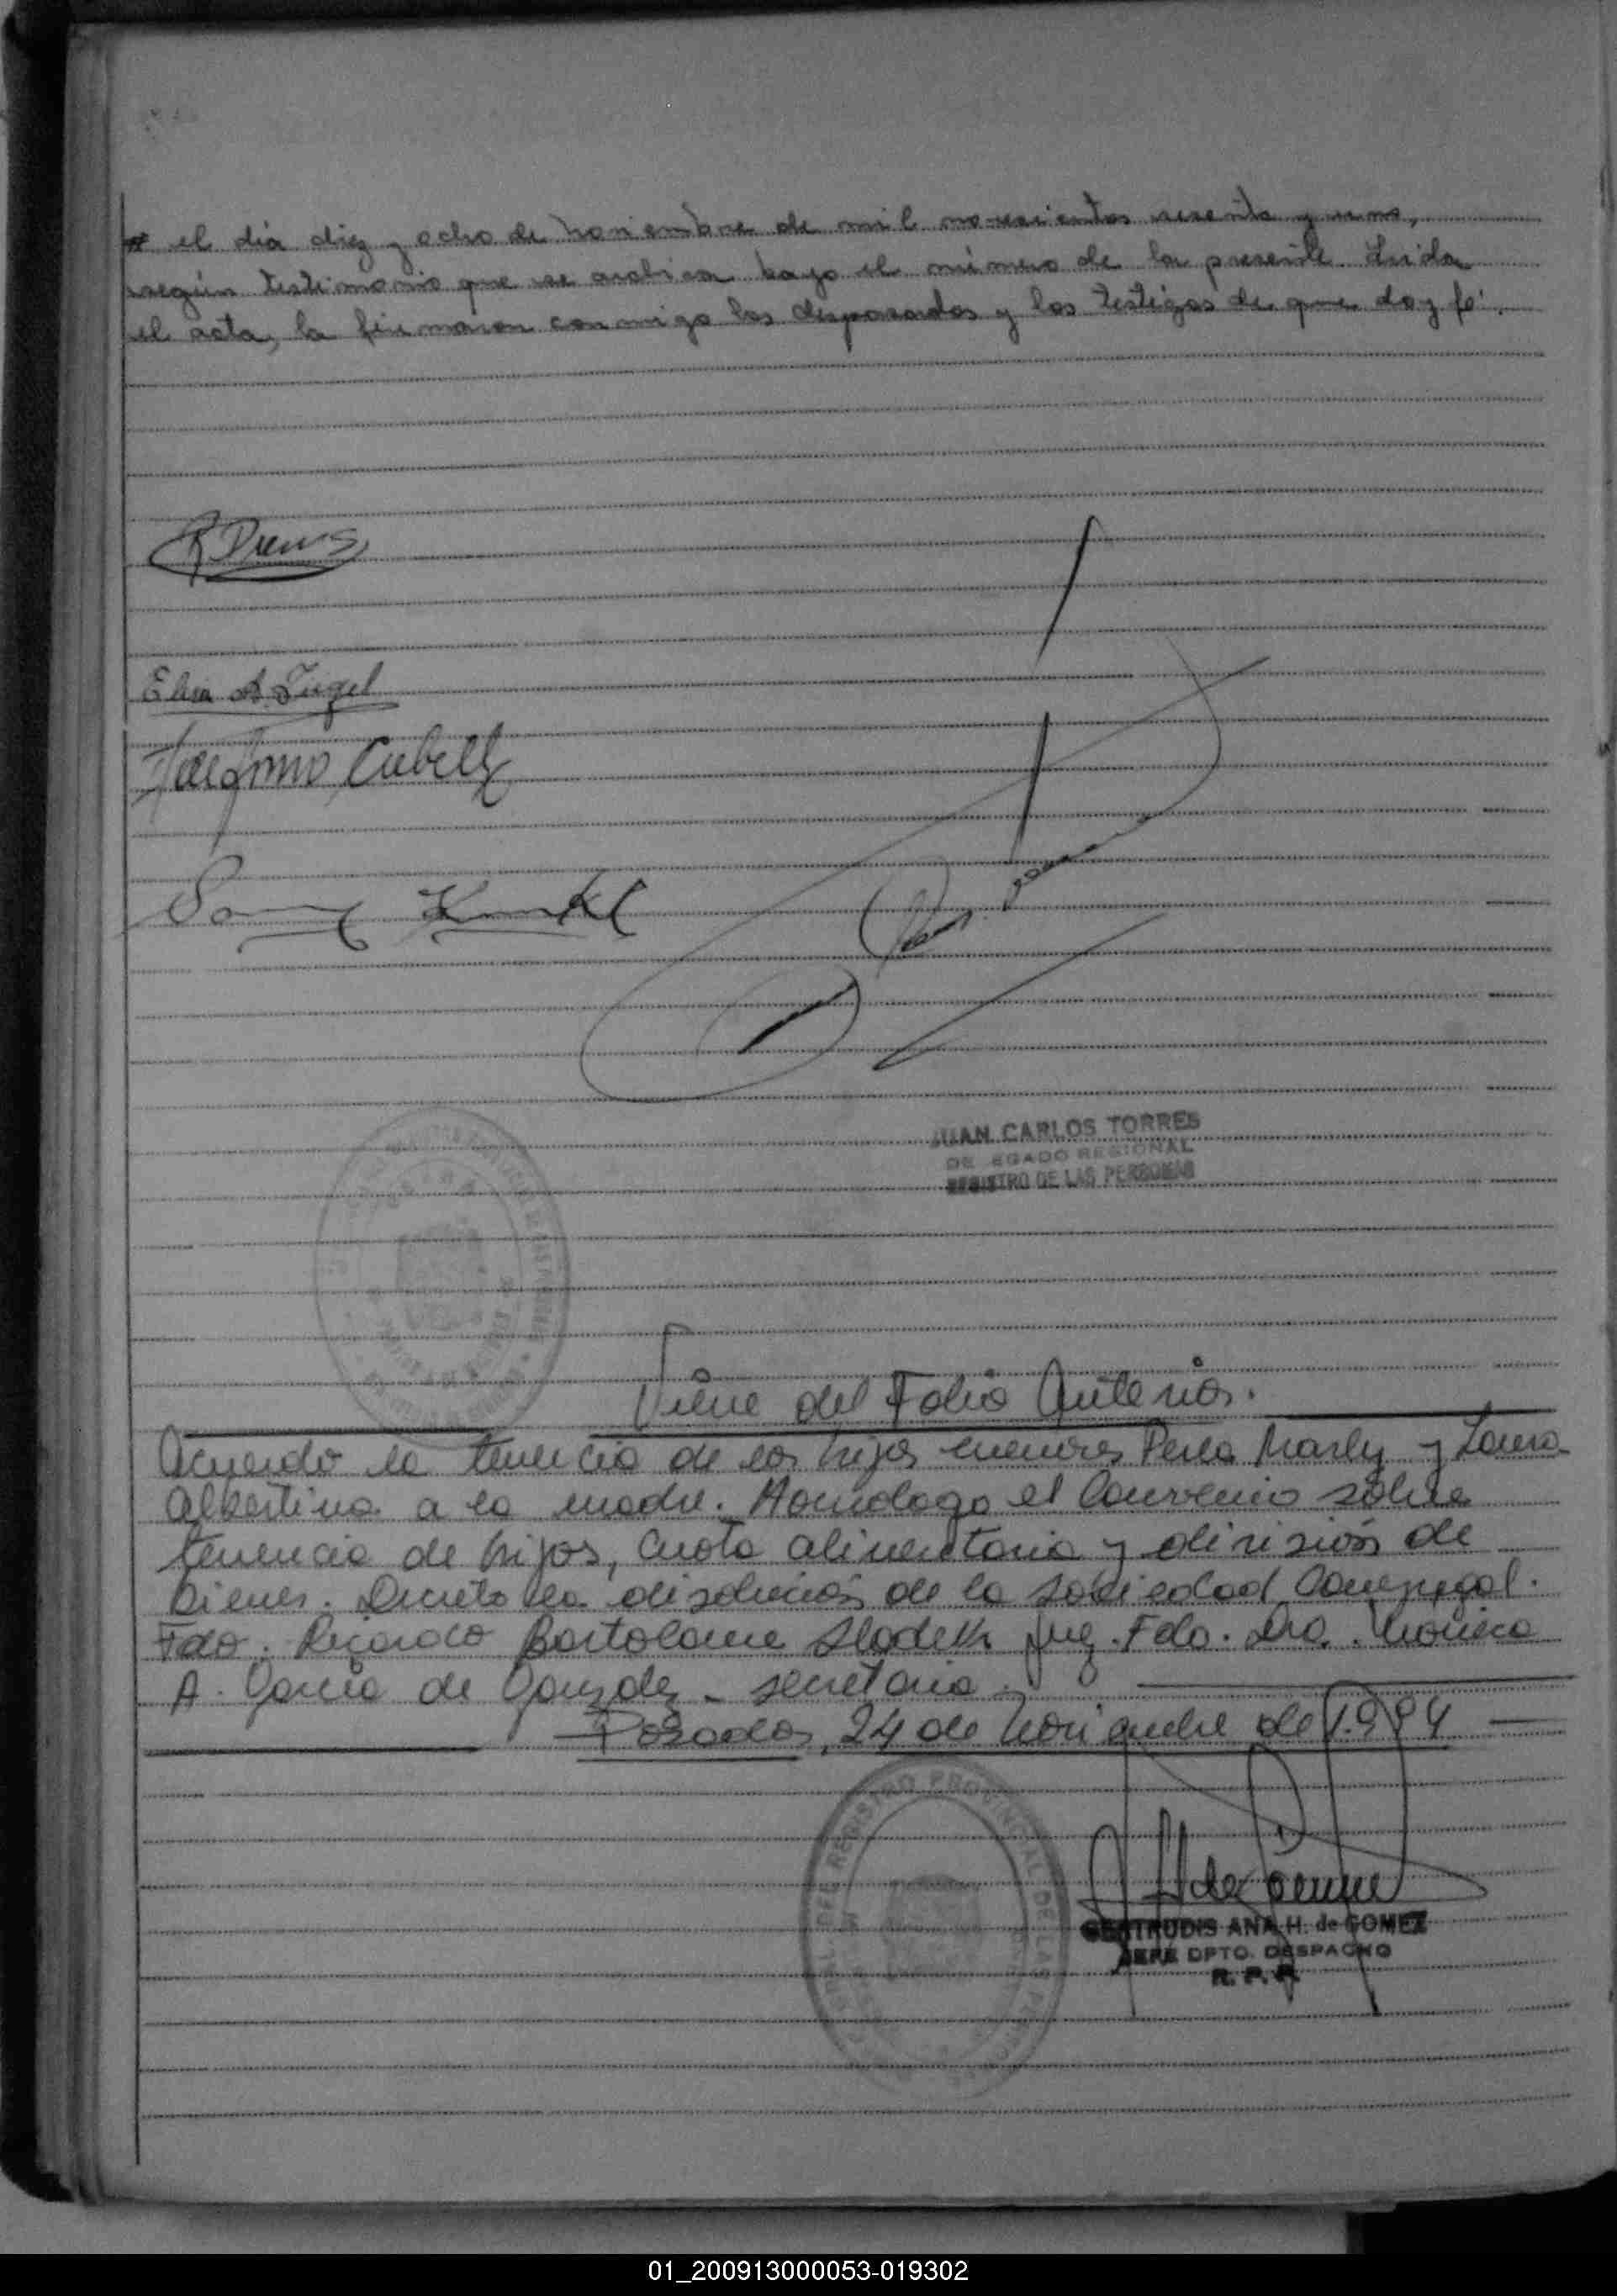 el día diez y ocho de noviembre de mil novecientos sesenta y uno,
según testimonio que se archiva bajo el número de la presente. Leida
el acta, la firmaron conmigo los desposados y los testigos de que doy fé.
Elsa A.
Cubells
JUAN CARLOS TORRES
DELEGADO REGIONAL
REGISTRO DE LAS PERSONAS
Viene del Folio Anterior.
Acuerdo la tenencia de los hijos menores Perla Marly y Laura
Albertina a la madre. Homologo el Convenio sobre
tenencia de hijos, cuota alimentaria y división de
bienes. Decreto la disolución de la sociedad Conyugal.
Fdo. Ricardo Bartolome Sladek Juez. Fdo. Dra. Mónica
A. García de González - secretaria.
Posadas, 24 de Noviembre de 1.994
REGISTRO PROVINCIAL DE LAS PERSONAS
GERTRUDIS ANA H. de GOMEZ
JEFE DPTO. DESPACHO
R. P. P.
01_200913000053-019302